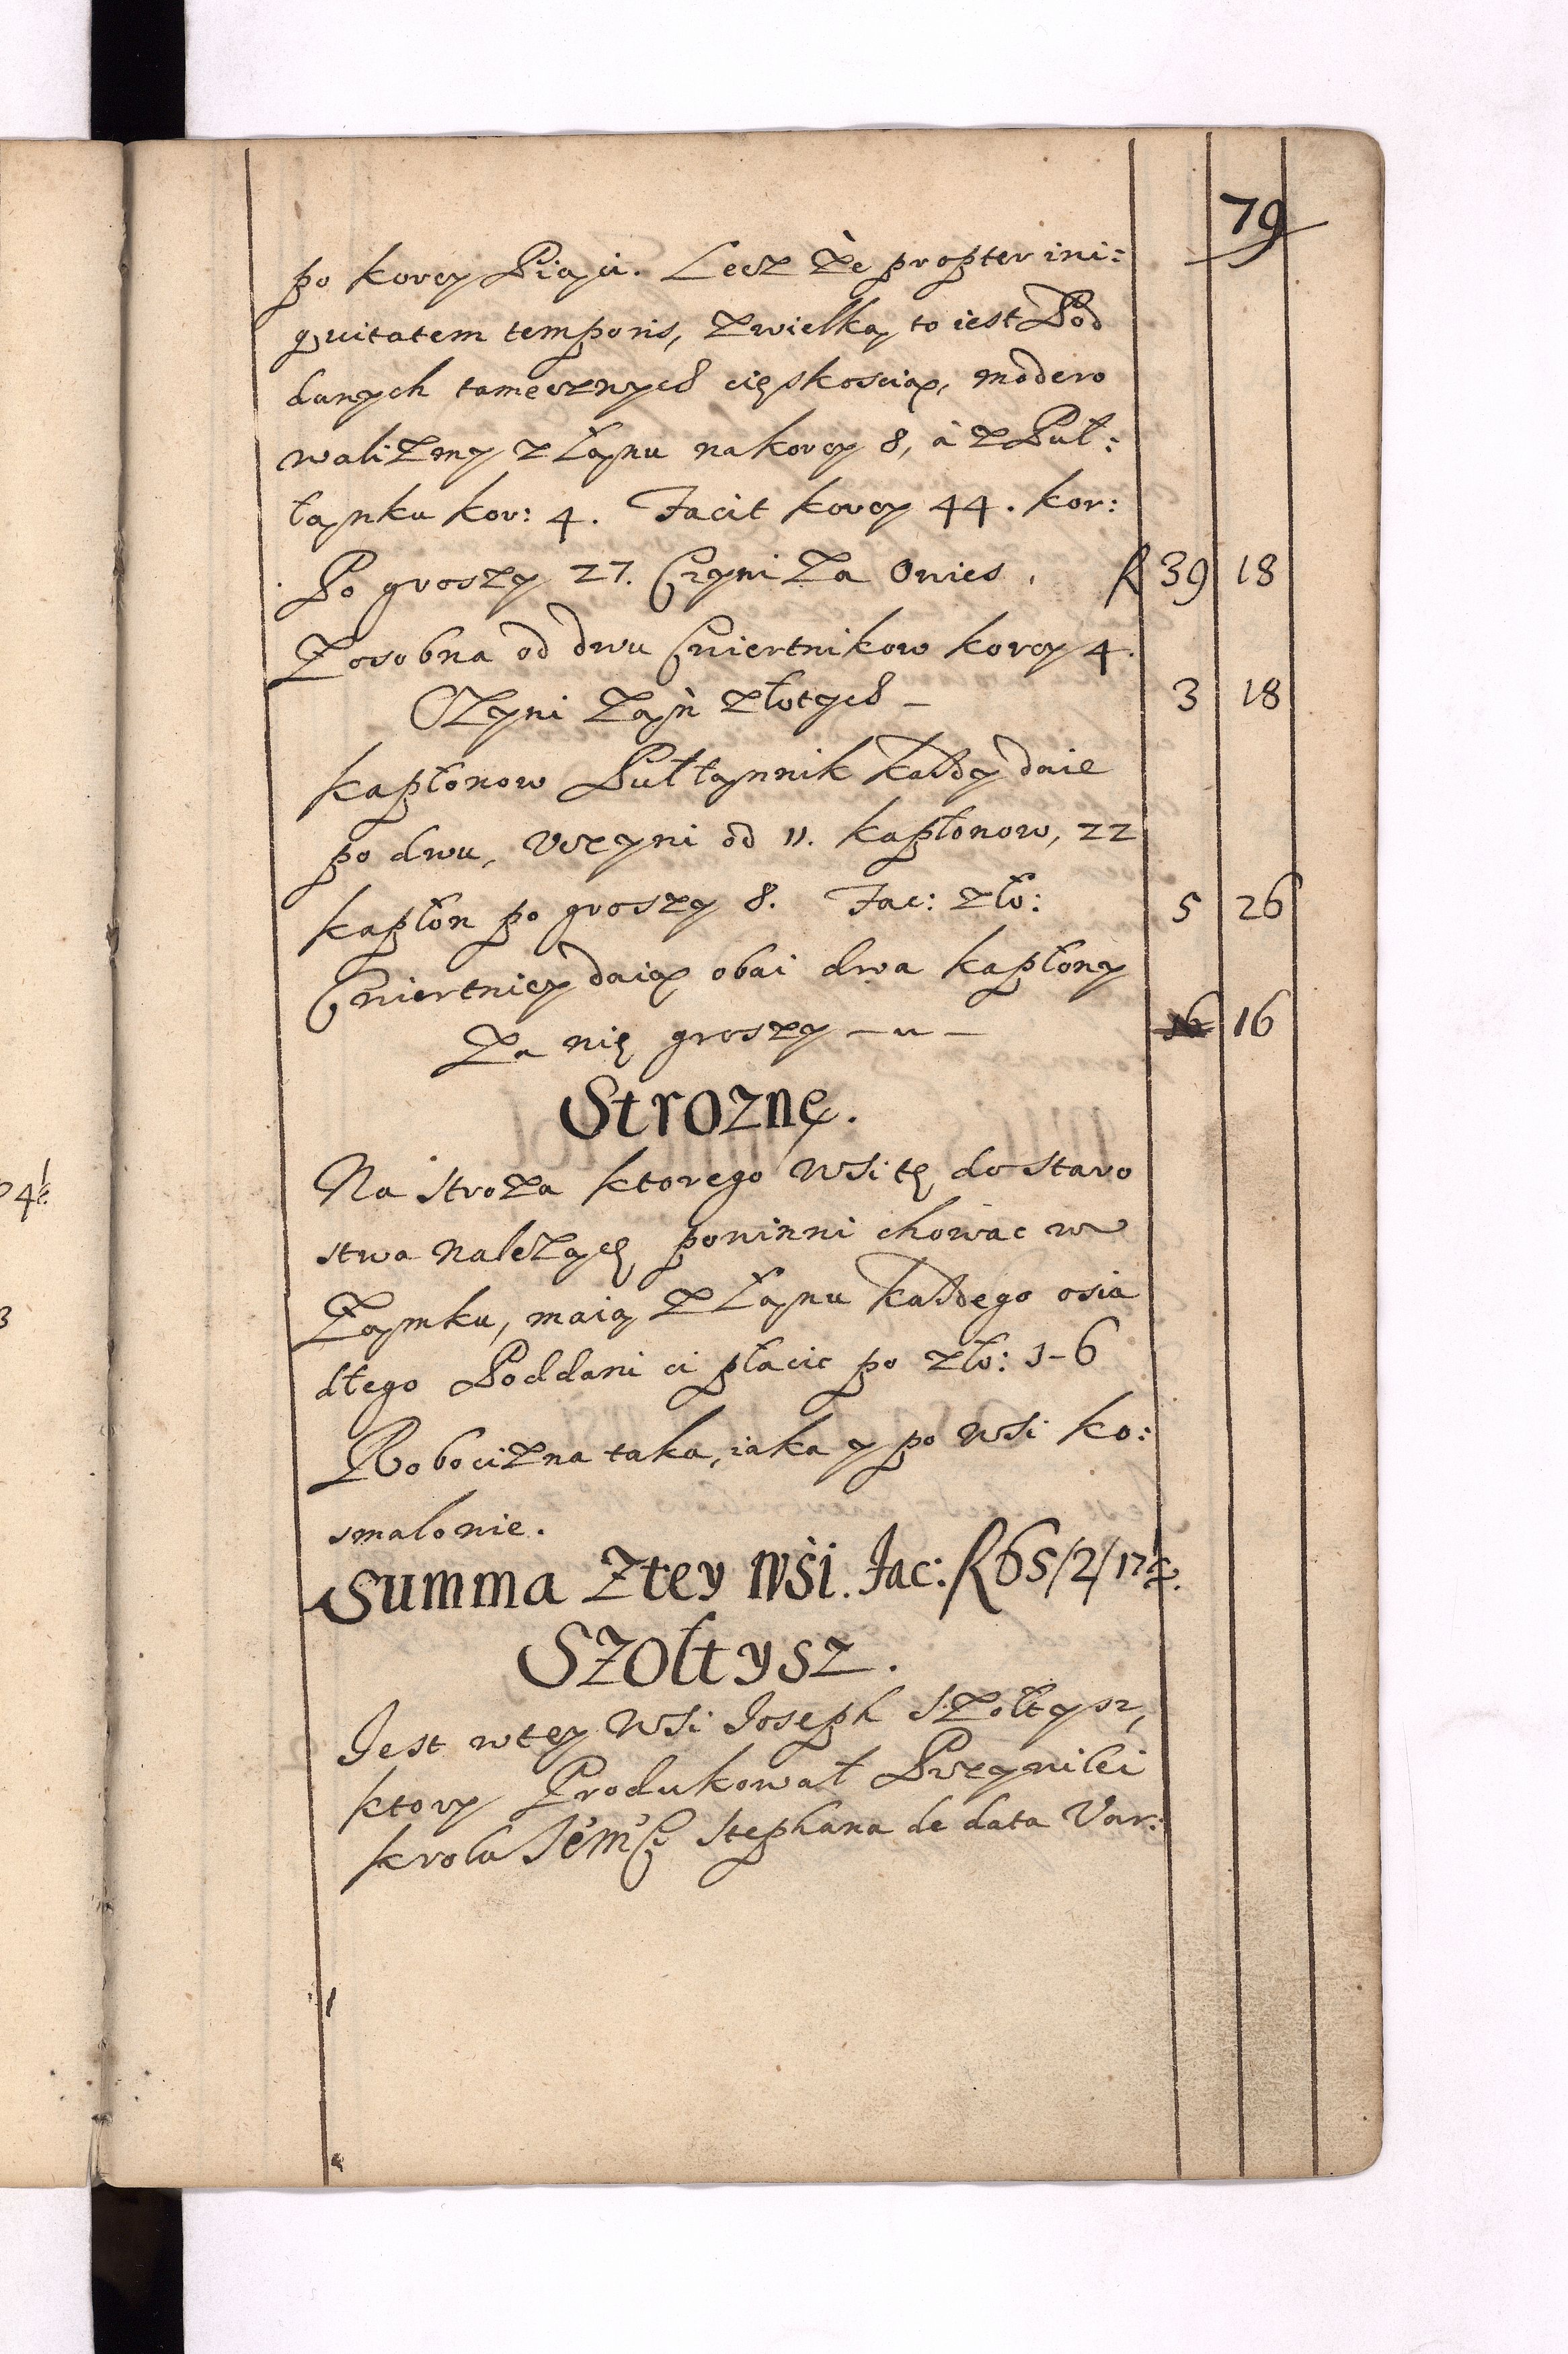 79
po korcy Piąci. Lecz że propter ini:
quitatem temporis, z wielką to iest Pod
danych tamecznych cięskoscią, modero
waliżmy z Łanu na korcy 8, à z Puł:
łanku kor: 4. Facit korcy 44. kor:
Po groszy 27. Czyni za Owies. f 39 18
Zosobna od dwu Cwiertnikow korcy 4.
Czyni zań złotych – 3 18
kapłonow Pułłannik każdy daie
po dwu, Uczyni od 11. kapłonow, 22
kapłon po groszy 8. Fac: zło: 5 26
Cwiertnicy daią obai dwa kapłony
za nię groszy – u – 16 16
Stroznę.
Na stroża ktorego Wsi tę do staro
stwa należącę powinni chowac w
Zamku, maią z Łanu każdego osia
dłego Poddani ci płacic po zło: 1-6
Robocizna taka, iaka y po Wsi ko:
smalonie.
Summa z tey Wśi. Fac: f 65/2/17
Szołtysz.
Jest w tey Wsi Joseph Szołtysz,
ktory Produkował Przywilei
krola Jem͛C: Stephana de data Var:
4
3